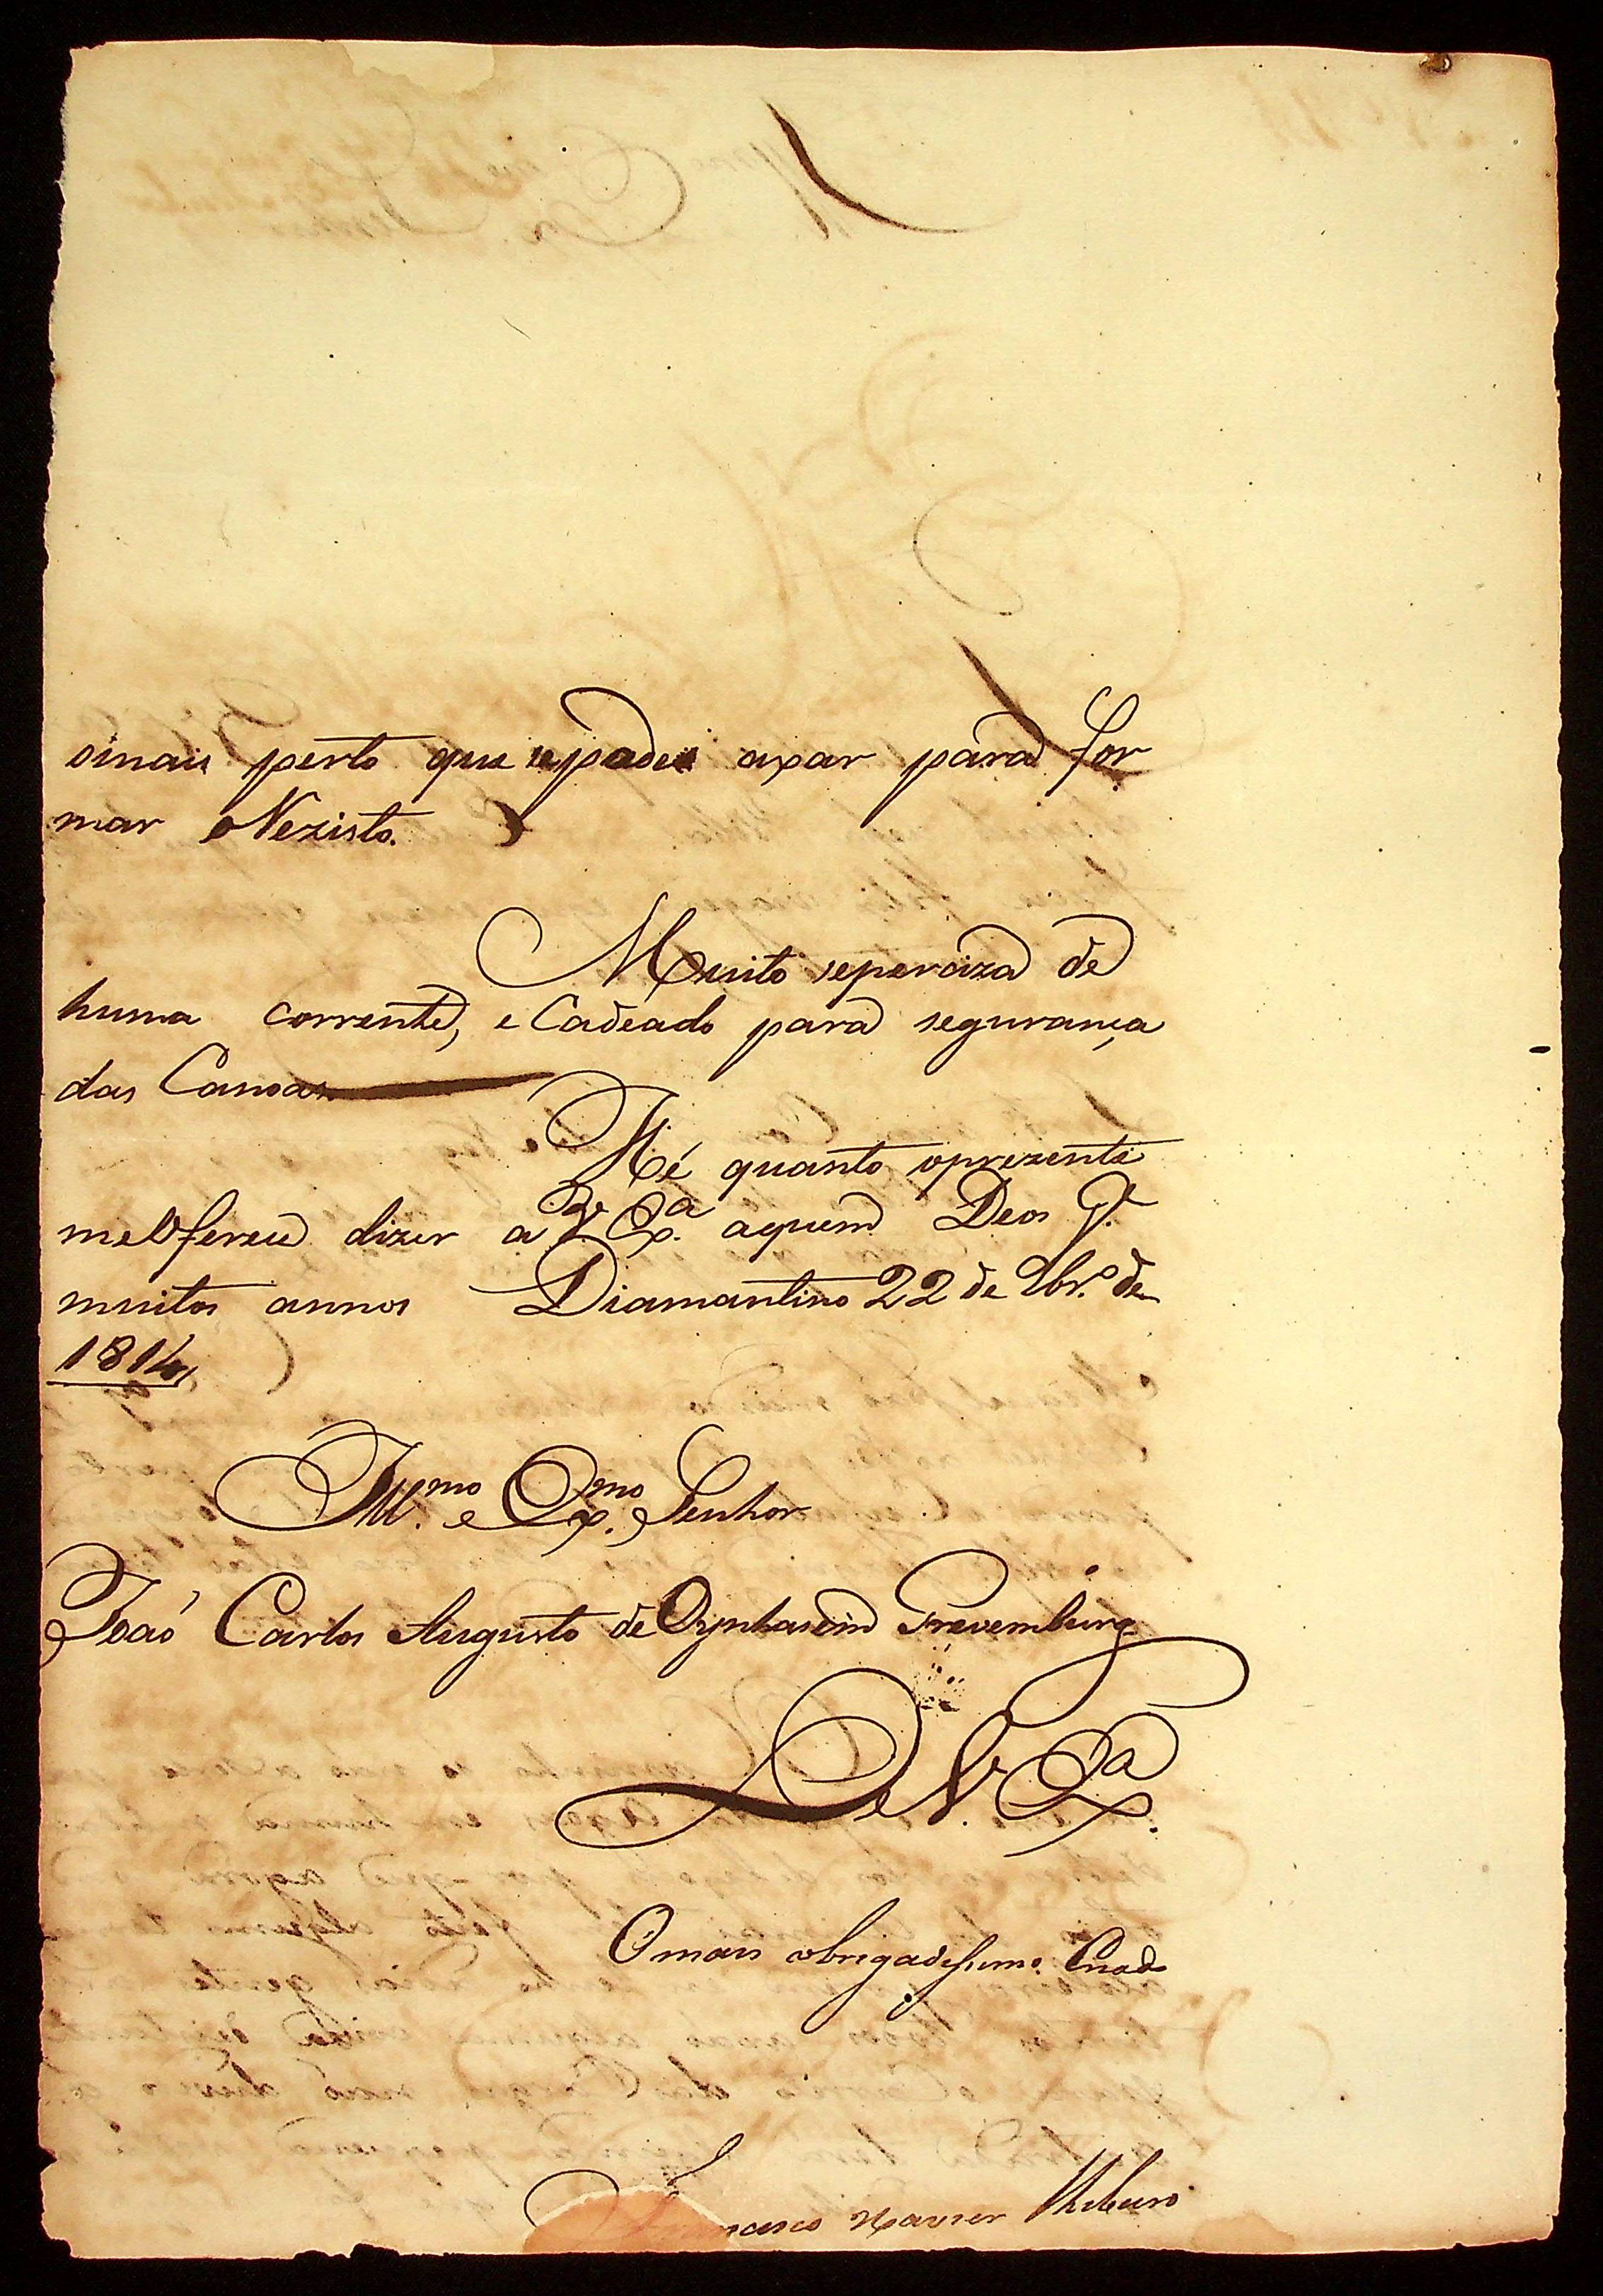 omais perto que sepode axar para for
mar oRezisto.
Muito sepersiza de
huma corrente, e Cadeado para segurança
das Canoas
Hé quanto oprezente
meOferese dizer a V. Ex.ª aquem Deos G.e
muitos annos Diamantino 22 de 9br.º de
1814
Ill.mo e Ex.mo Senhor
Joaó Carlos Augusto de Oynhasem Grevemburg
De V. Ex.ª
O mais obrigadissimo Criado
Francisco Xavier Ribeiro